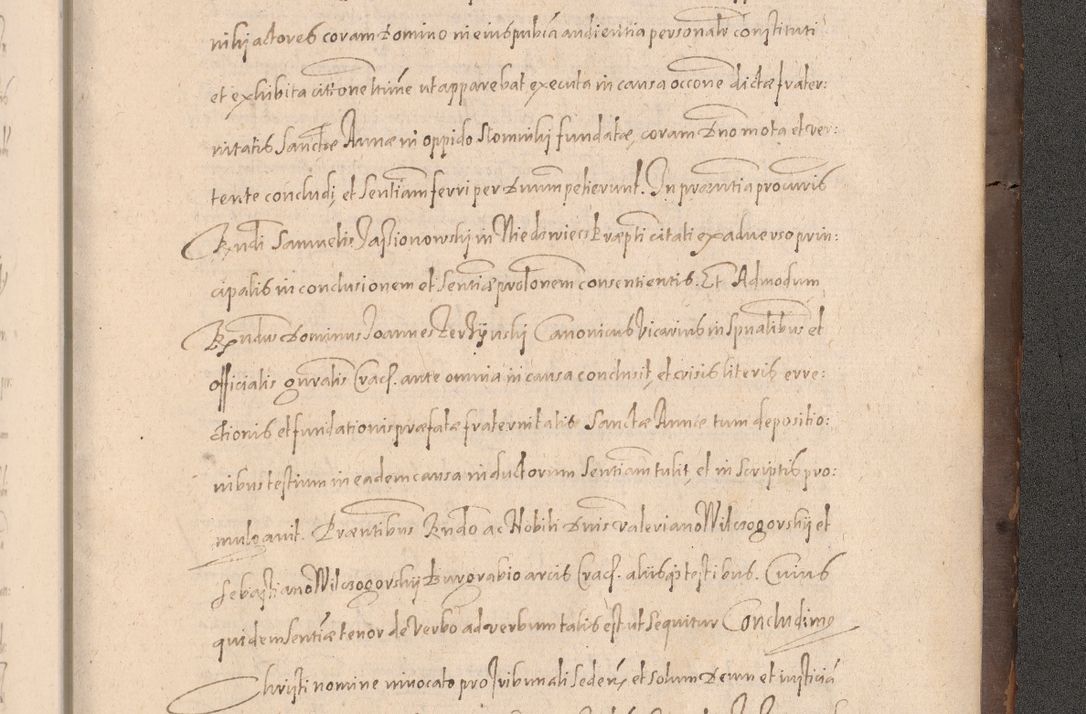 nikij actores coram Domino in eius pub͠ca audientia personalr constituti
et exhibita cit͠rone ltime ut apparebat executa in causa occ͠one dictæ frater:
nitatis Sanctæ Annæ in oppido Slomniki fundatæ, coram D͠no mota et ver:
tente concludi, et Sent͠iam ferri per D͠num petierunt. In præ͠ntia procur͠is
R͠ndi Samuelis Jassionowskij in Niedzwiecz Præp͠ti citati ex adverso prin:
cipalis in conclusionem et Sent͠iæ prol͠onem consentientis. Et Admodum
R͠ndus Dominus Joannes Zerzijnskij Canonicus Vicarius in Sp͠ualibus et
officialis g͠nralis Crac͠f. ante omnia in causa conclusit, et visis literis erre:
ctionis et fundationis præfatæ fraternitatis Sanctæ Annæ tum depositio:
nibus testium in eadem causa inductorum Sent͠iam tulit, et in Scriptis pro:
mulgavit. Præ͠ntibus R͠ndo ac Nobili D͠nis Valeriano Wilczogorskij et
Sebastiano Wilczogorskij Burgrabio arcis Crac͠f. aliisq3 testibus. Cuius
quidem Sent͠iæ tenor de verbo ad verbum talis est ut Sequitur Concludimus
Christi nomine invocato pro Tribunali Seden͠, et Solum Deum et iusticiā